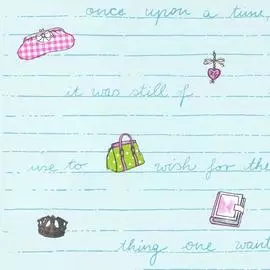 once upon a time,
it was still of
use to wish for the
thing one want